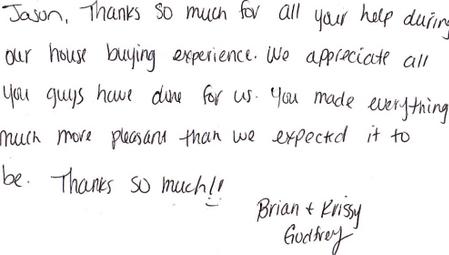 Jason, Thanks so much for all your help during
our house buying experience. We appreciate all
you guys have done for us. You made everything
much more pleasant than we expected it to
be. Thanks so much!!
Brian + Krissy
Godfrey